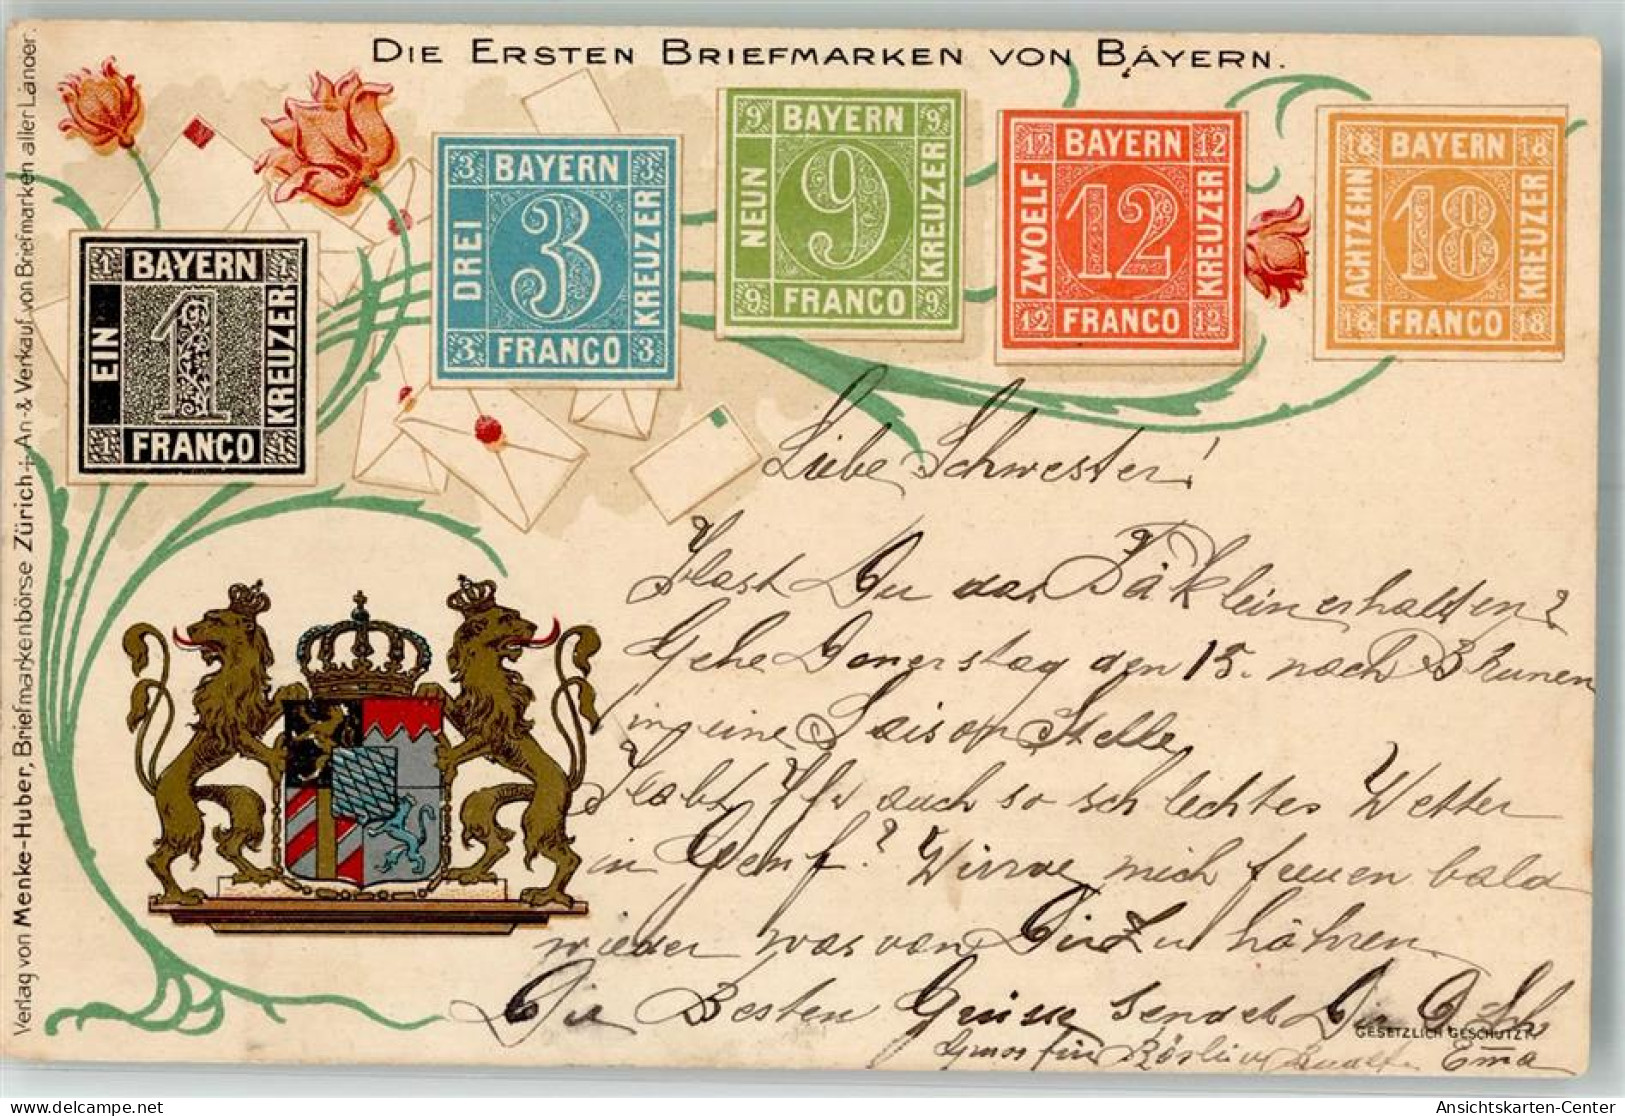 DIE ERSTEN BRIEFMARKEN VON BAYERN.
Verlag von Menke-Huber, Briefmarkenbörse Zürich An- & Verkauf von Briefmarken aller Länder.
1 1
BAYERN
EIN
1
KREUZER
FRANCO
1 1
3 BAYERN 3
DREI
3
KREUZER
3 FRANCO 3
9 BAYERN 9
NEUN
9
KREUZER
9 FRANCO 9
12 BAYERN 12
ZWOELF
12
KREUZER
12 FRANCO 12
18 BAYERN 18
ACHTZEHN
18
KREUZER
18 FRANCO 18
Liebe Schwester!
Hast Du das Päklein erhalten?
Gehe Donerstag den 15. nach Brunen
in eine Saison Stelle
Habt Ihr auch so schlechtes Wetter
in Genf? Würde mich freuen bald
wieder was von Dir zu höhren
Die Besten Grüsse sendet Dir D. Sch
GESETZLICH GESCHÜTZT.
Gruss für Rösli Ema
Ansichtskarten-Center
www.delcampe.net